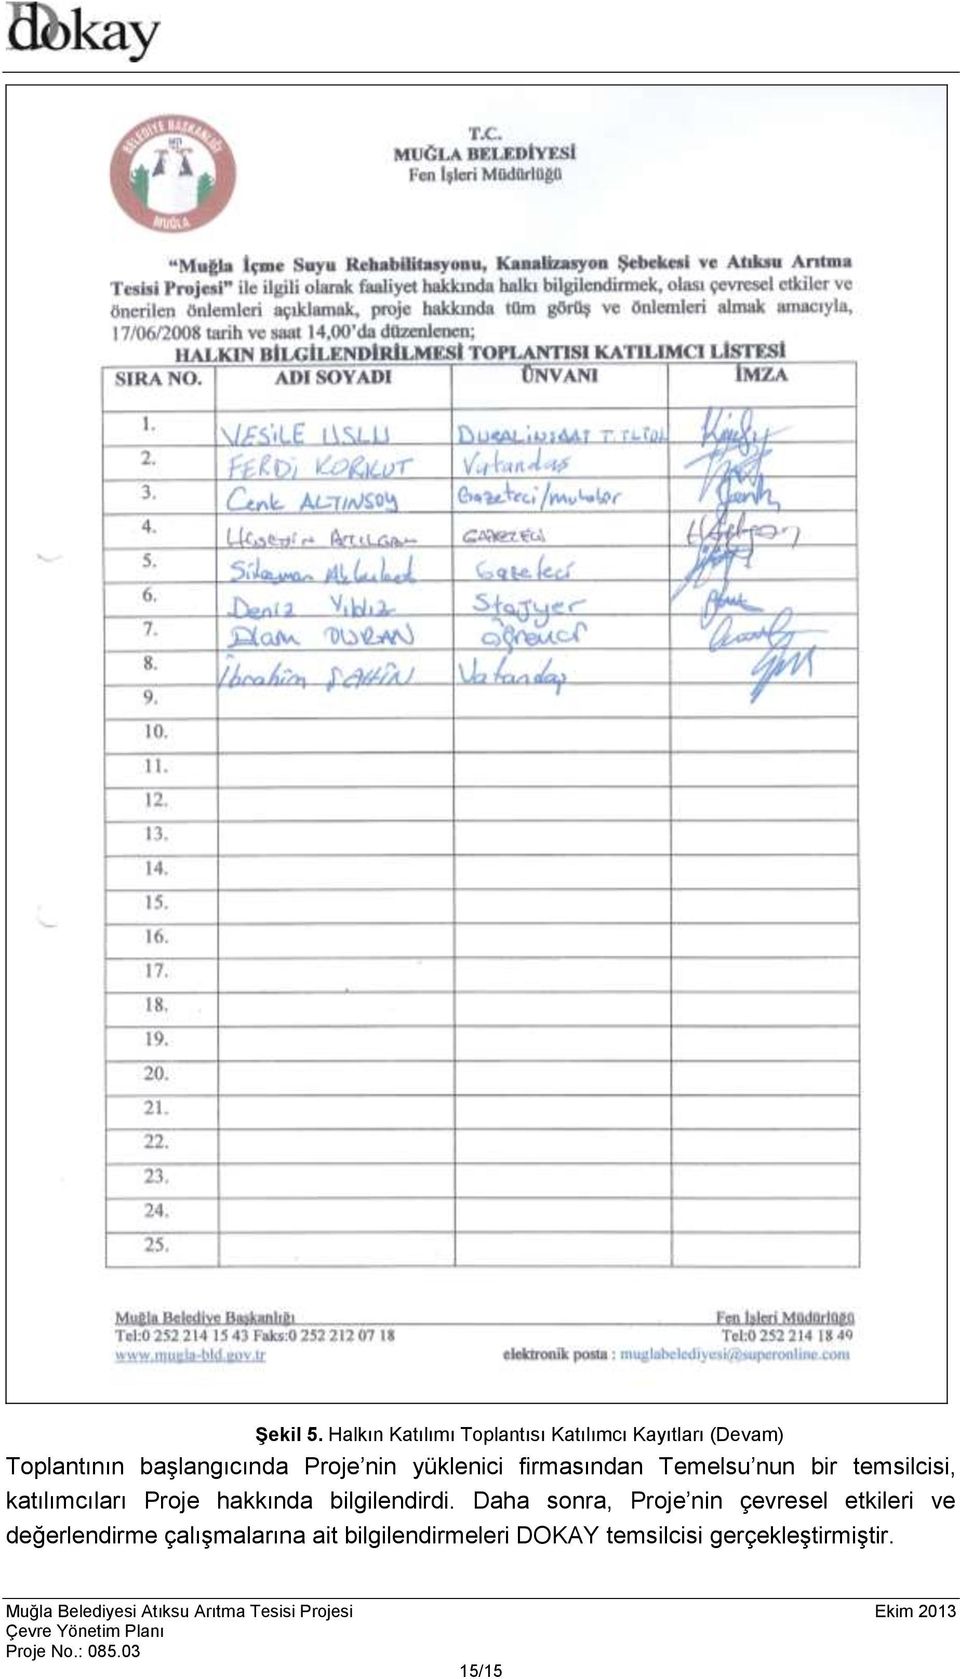 dokay
BELEDİYE BAŞKANLIĞI
MUĞLA
T.C.
MUĞLA BELEDİYESİ
Fen İşleri Müdürlüğü
“Muğla İçme Suyu Rehabilitasyonu, Kanalizasyon Şebekesi ve Atıksu Arıtma
Tesisi Projesi” ile ilgili olarak faaliyet hakkında halkı bilgilendirmek, olası çevresel etkiler ve
önerilen önlemleri açıklamak, proje hakkında tüm görüş ve önlemleri almak amacıyla,
17/06/2008 tarih ve saat 14,00’da düzenlenen;
HALKIN BİLGİLENDİRİLMESİ TOPLANTISI KATILIMCI LİSTESİ
SIRA NO. ADI SOYADI ÜNVANI İMZA
1. VESİLE USLU
2. FERDİ KORKUT Vatandaş
3. Cenk ALTINSOY Gazeteci/muhabir
4.
5. Süleyman Gazeteci
6. Deniz Yıldız Stajyer
7. DURAN öğrenci
8. İbrahim ŞAHİN Vatandaş
9.
10.
11.
12.
13.
14.
15.
16.
17.
18.
19.
20.
21.
22.
23.
24.
25.
Muğla Belediye Başkanlığı Fen İşleri Müdürlüğü
Tel:0 252 214 15 43 Faks:0 252 212 07 18 Tel:0 252 214 18 49
www.mugla-bld.gov.tr elektronik posta : muglabelediyesi@superonline.com
Şekil 5. Halkın Katılımı Toplantısı Katılımcı Kayıtları (Devam)
Toplantının başlangıcında Proje’nin yüklenici firmasından Temelsu’nun bir temsilcisi,
katılımcıları Proje hakkında bilgilendirdi. Daha sonra, Proje’nin çevresel etkileri ve
değerlendirme çalışmalarına ait bilgilendirmeleri DOKAY temsilcisi gerçekleştirmiştir.
Muğla Belediyesi Atıksu Arıtma Tesisi Projesi Ekim 2013
Çevre Yönetim Planı
Proje No.: 085.03
15/15